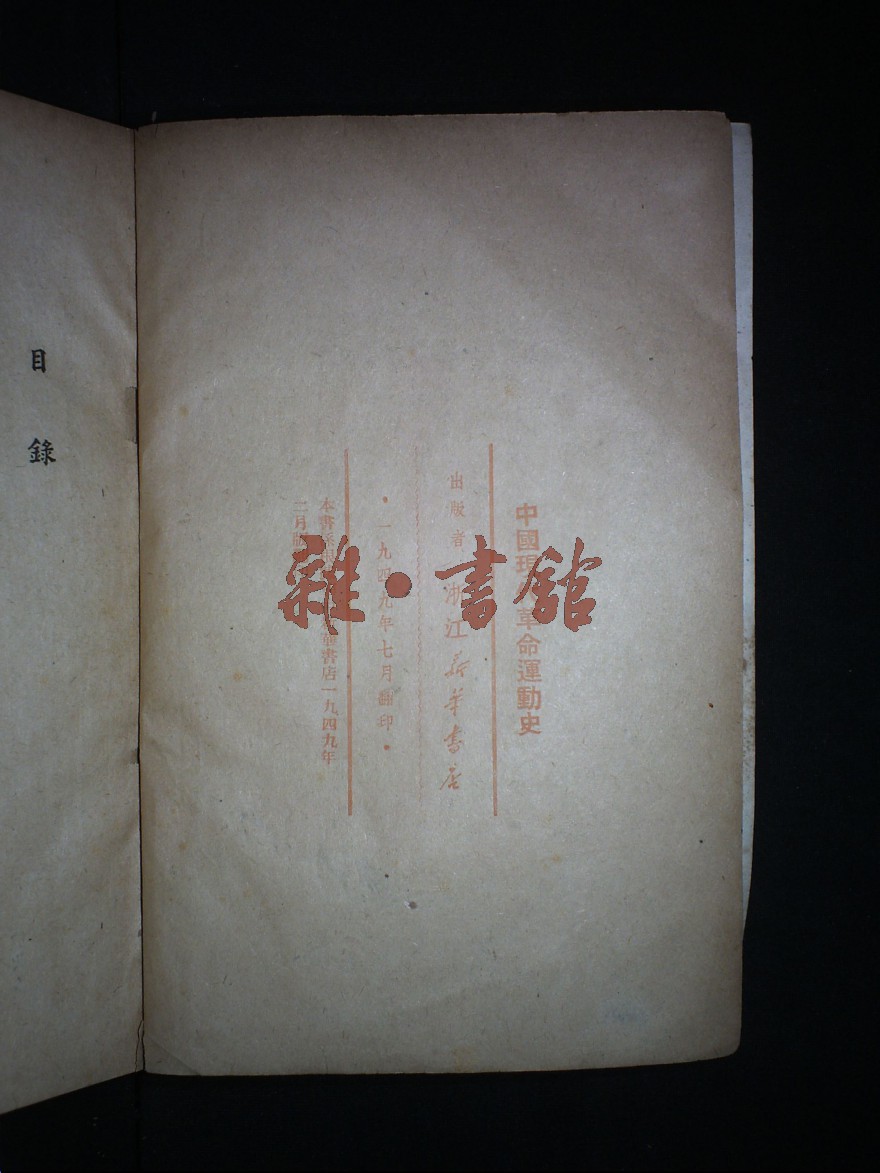 中國現 革命運動史
出版者 浙江新華書店
·一九四九年七月翻印·
本書 書店一九四九年
二月
目錄
雜·書館